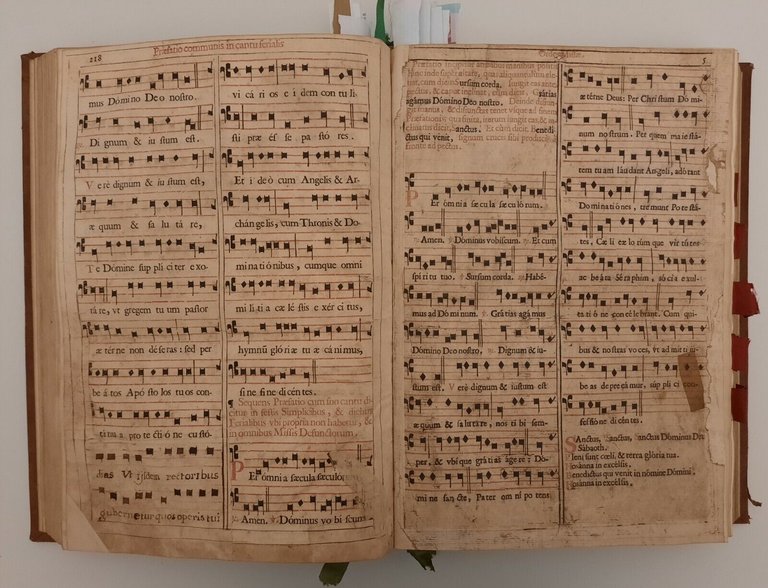 Præfatio communis in cantu ferialis
218
mus Domino Deo nostro.
Di gnum & iu stum est.
Verè dignum & iu stum est,
æ quum & sa lu tá re,
Te Dómine sup pli ci ter e xo-
rá re, vt gregem tu um pastor
æ tér ne non dé se ras: sed per
be á tos Apó sto los tu os con-
ti nu a pro te cti ó ne cu stó-
dias Vt ijsdem rectoribus
gubernetur quos operis tui
vi cá ri os e i dem con tu li-
sti præ és se pa stó res.
Et i de ò cum Angelis & Ar-
chán ge lis, cum Thronis & Do-
mi na ti ó nibus, cumque omni
mi li ti a cæ lé stis e xér ci tus,
hymnũ gló ri æ tu æ cá ni mus,
si ne fi ne di cén tes.
¶ Sequens Præfatio cum suo cantu di-
citur in festis Simplicibus, & diebus
Ferialibus vbi propria non habetur, &
in omnibus Missis Defunctorum.
Per omni a sæcula sæculo
Amen. Dóminus vo bi scum
5
Præfatio incipitur ambabus manibus positis
hinc inde super altare, quas aliquantulum ele-
uat, cum dicit Sursum corda. iungit eas ante
pectus, & caput inclinat, cum dicit Grátias
agámus Dómino Deo nostro. Deinde disiun-
git manus, & disiunctas tenet vsque ad finem
Præfationis: qua finita, iterum iungit eas, &
inclinatus dicit, Sanctus. Et cùm dicit. Benedi-
ctus qui venit, signum crucis sibi producit à
fronte ad pectus.
Per ómni a sæ cu la sæ cu ló rum.
Amen. Dóminus vobíscum. Et cum
spí ri tu tuo. Sursum corda. Habé-
mus ad Dó mi num. Grátias agá mus
Dómino Deo nostro, Dignum & iu-
stum est. Verè dignum & iustum est
æ quum & sa lu tá re, nos ti bi sem-
per, & vbí que grá ti as áge re: Dó-
mi ne san cte, Pa ter om ní po tens
æ térne Deus: Per Chri stum Dó mi-
num no strum. Per quem ma ie stá-
tem tu am láu dant Angeli, adó rant
Do mi na ti ó nes, tre munt Po te stá-
tes, Cæ li cæ lo rum que vir tú tes
ac be á ta Sé ra phim, só ci a e xul-
ta ti ó ne con cé le brant. Cum qui-
bus & no stras vo ces, vt ad mít ti iu-
be as de pre cá mur, súp pli ci con-
fes si ó ne di cén tes.
Sanctus, Sanctus, Sanctus Dóminus De
Sábaoth.
Pleni sunt cœli, & terra glória tua.
Hosánna in excélsis.
Benedíctus qui venit in nómine Dómini.
Hosánna in excélsis.